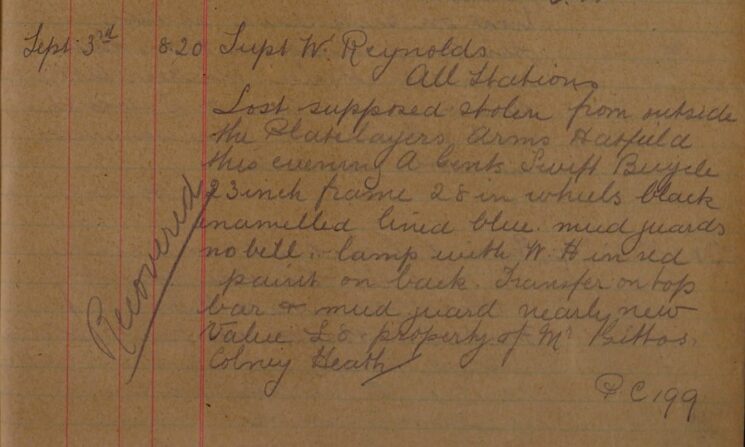 Sept 3rd 8.20 Supt W. Reynolds
All Stations
Lost supposed stolen from outside
the Platelayers Arms Hatfield
this evening A Gents Swift Bicycle
23 inch frame 28 in wheels black
enamelled lined blue. mud guards
no bell. lamp with W. H in red
paint on back. Transfer on top
bar & mud guard nearly new
Value £8 property of Mr
Colney Heath
P.C. 199
Recovered